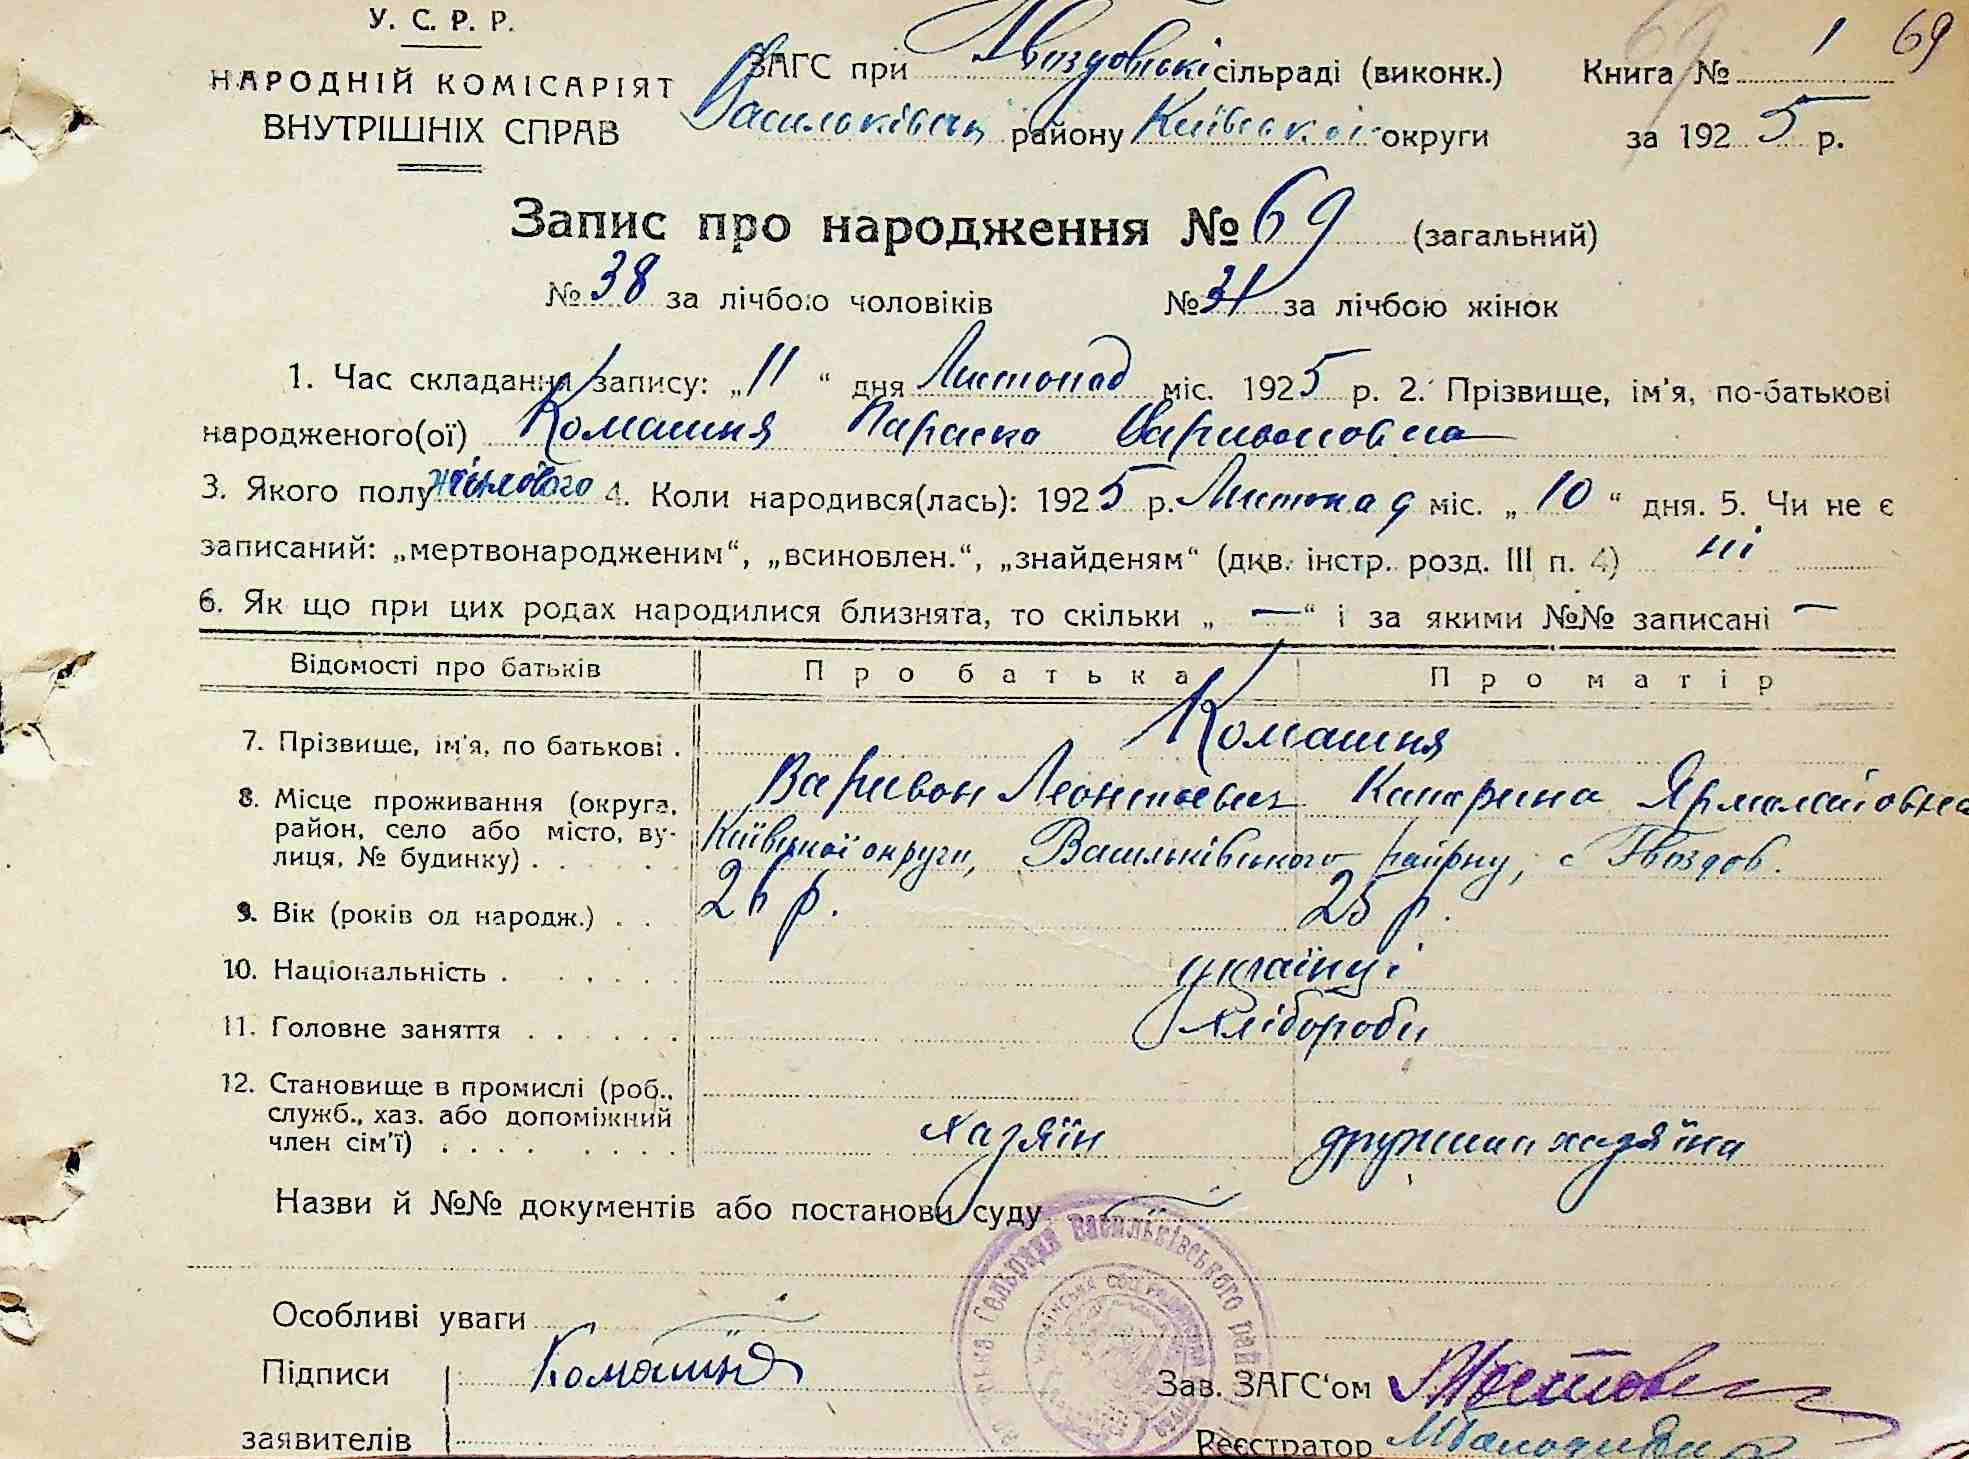 У. С. Р. Р.
НАРОДНІЙ КОМІСАРІЯТ
ВНУТРІШНІХ СПРАВ
ЗАГС при Гвоздовській сільраді (виконк.)
Васильківськ. району Київської округи
Книга № 1 69
за 1925 р.
Запис про народження № 69 (загальний)
№ 38 за лічбою чоловіків № 31 за лічбою жінок
1. Час складання запису: „11“ дня Листопад міс. 1925 р. 2. Прізвище, ім'я, по-батькові
народженого(ої) Комашня Параска Варивоновна
3. Якого полу жіночого 4. Коли народився(лась): 1925 р. Листопад міс. „10“ дня. 5. Чи не є
записаний: „мертвонародженим“, „всиновлен.“, „знайденям“ (дкв. інстр. розд. III п. 4) ні
6. Як що при цих родах народилися близнята, то скільки „ — “ і за якими №№ записані —
Відомості про батьків Про батька Про матір
7. Прізвище, ім'я, по батькові . Комашня
Варивон Леонтієвич Катерина Ярмолаіовна
8. Місце проживання (округа,
район, село або місто, ву-
лиця, № будинку) . . . . .
Київської округи, Васильківського району, с Гвоздов.
9. Вік (років од народж.) . . 26 р. 25 р.
10. Національність . . . . . українці
11. Головне заняття . . . . . . хлібороби
12. Становище в промислі (роб.,
служб., хаз. або допоміжний
член сім'ї) . . . . . . . . хазяїн дружина хазяїна
Назви й №№ документів або постанови суду
Особливі уваги
Підписи Комашня
заявителів
Зав. ЗАГС'ом
Реєстратор
Сельрада Васильківського району